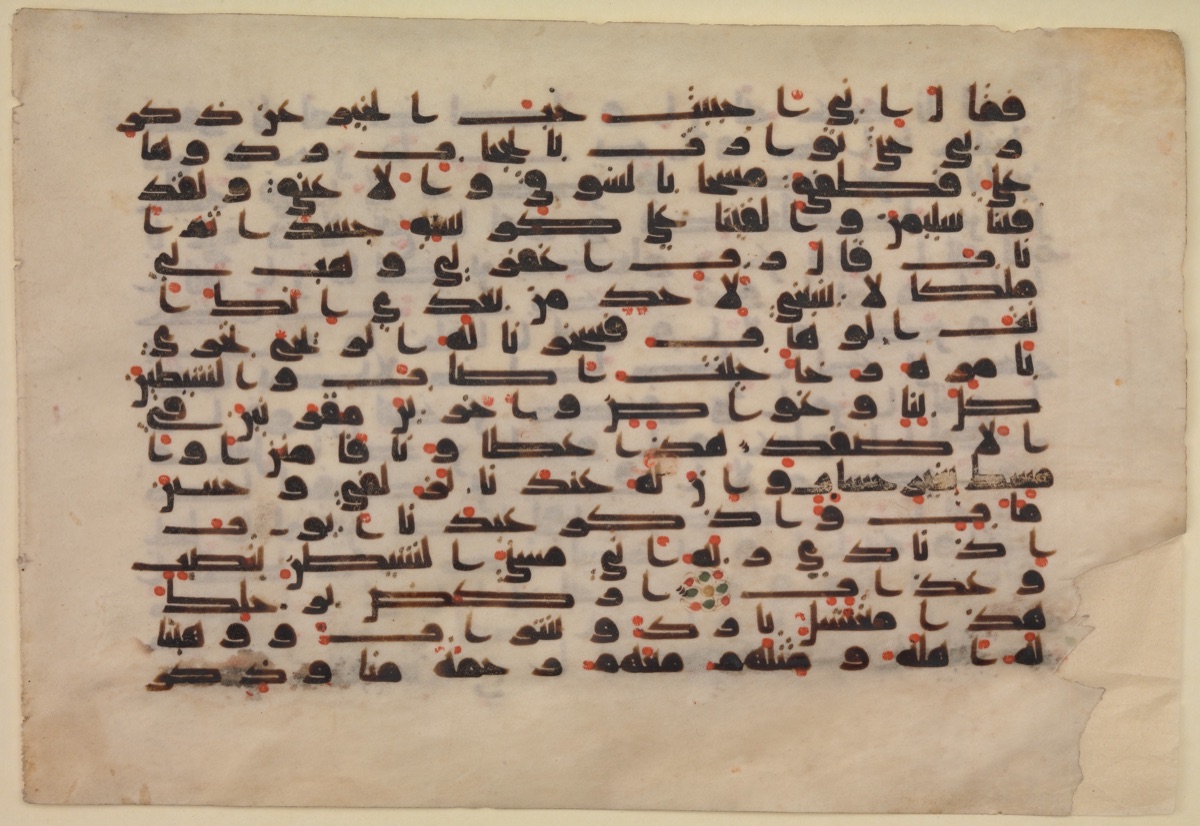 فقال اني احببت حب الخير عن ذكر
ربي حتى توارت بالحجاب ردوها
علي فطفق مسحا بالسوق والاعنق ولقد
فتنا سليمن والقينا على كرسيه جسدا ثم انا
ناب قال رب اغفر لي وهب لي
ملكا لا ينبغي لاحد من بعدي انك ا
نت الوهاب فسخرنا له الريح تجري
بامره رخا حيث اصاب والشيطين
كل بنا وغواص واخرين مقرنين في
الاصفد هذا عطاونا فامنن او ا
مسك بغير حساب وان له عندنا لزلفى وحسن
ماب واذكر عبدنا ايوب
اذ نادى ربه اني مسني الشيطن بنصب
وعذاب اركض برجلك
هذا مغتسل بارد وشراب ووهبنا
له اهله ومثلهم معهم رحمة منا وذكرى